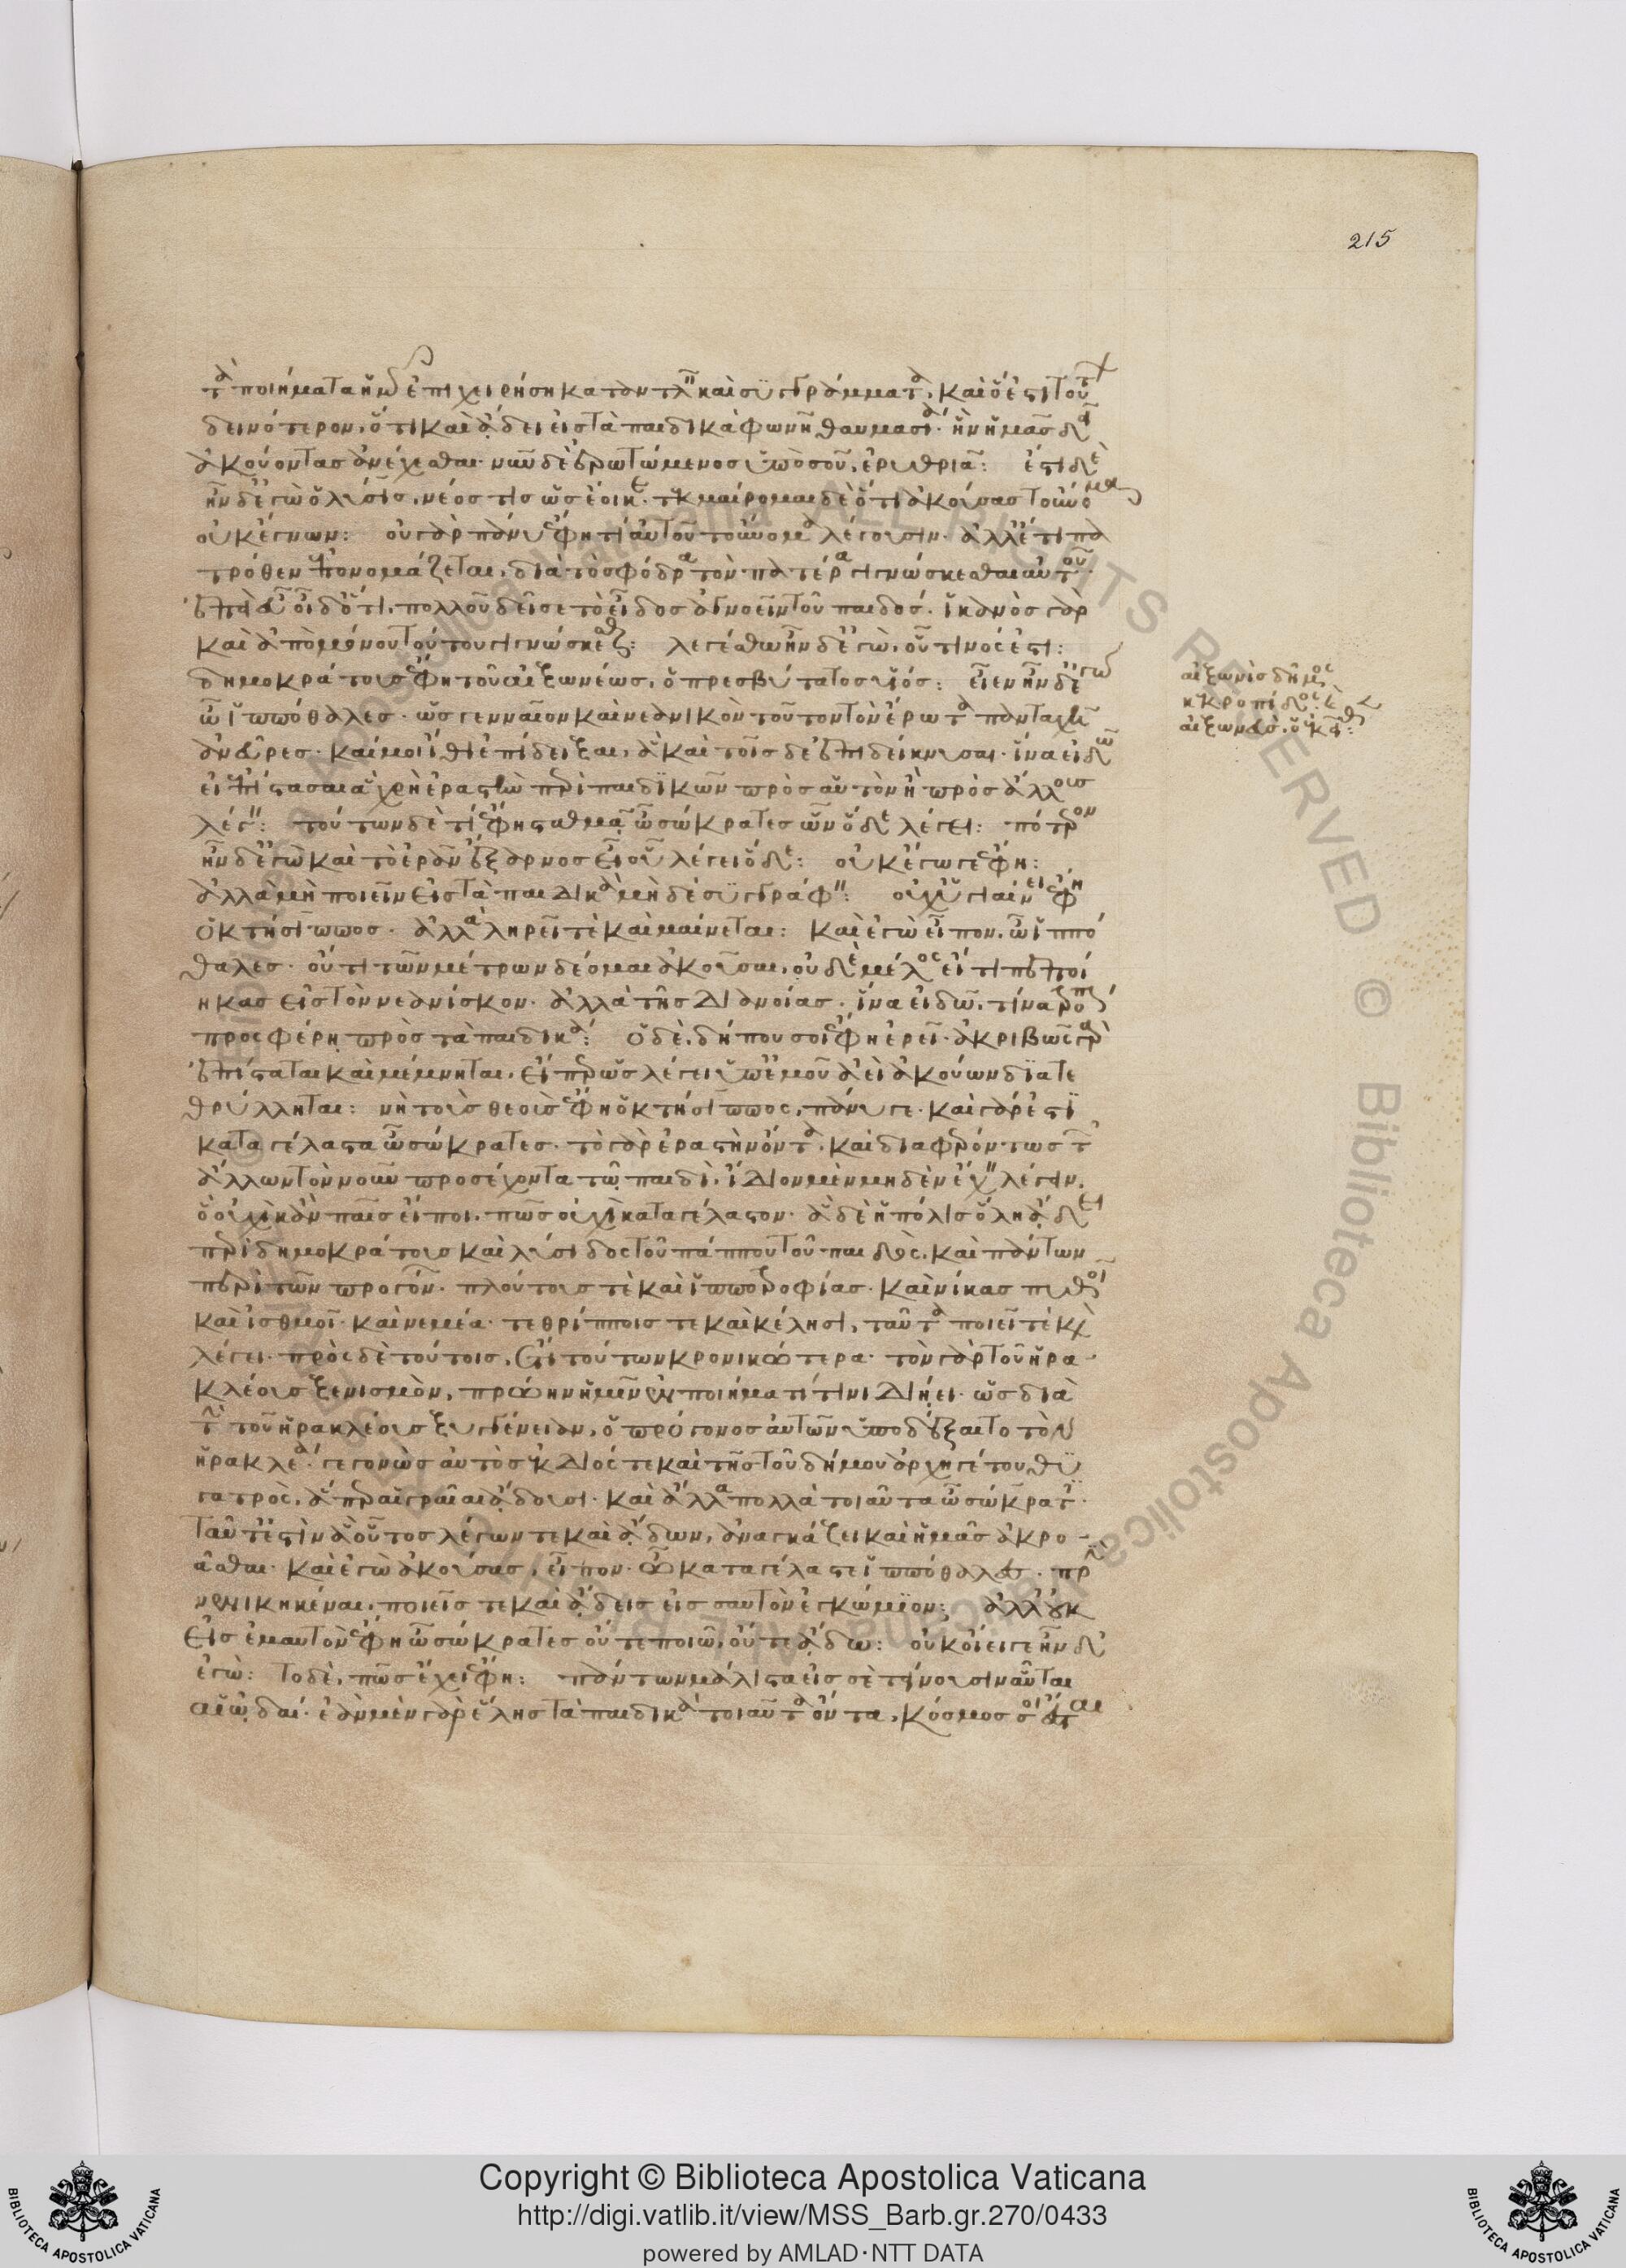 215
τὰ ποιήματα ἡμῶν ἐπιχειρήσῃ καταντλεῖν καὶ συγγράμματα. καὶ ὅ ἐστι τούτων
δεινότερον, ὅτι καὶ ᾄδει εἰς τὰ παιδικὰ φωνῇ θαυμασίᾳ. ἣν ἡμᾶς δεῖ
ἀκούοντας ἀνέχεσθαι. νῦν δὲ ἐρωτώμενος ὑπὸ σοῦ, ἐρυθριᾷ: ἔστι δὲ
ἦν δ' ἐγὼ ὁ λύσις, νέος τις ὡς ἔοικε. τεκμαίρομαι δὲ ὅτι ἀκούσας τοὔνομα
οὐκ ἔγνων: οὐ γὰρ πάνυ ἔφη τί αὐτοῦ τοὔνομα λέγουσιν. ἀλλ' ἔτι πα
τρόθεν ἐπονομάζεται, διὰ τὸ σφόδρα τὸν πατέρα γιγνώσκεσθαι αὐτοῦ.
ἐπεὶ εὖ οἶδ' ὅτι, πολλοῦ δεῖς τὸ εἶδος ἀγνοεῖν τοῦ παιδός. ἱκανὸς γὰρ
καὶ ἀπὸ μόνου τούτου γιγνώσκεσθαι: λεγέσθω ἦν δ' ἐγὼ, οὗτινός ἐστι:
δημοκράτους ἔφη τοῦ αἰξωνέως, ὁ πρεσβύτατος υἱός: εἶεν ἦν δ' ἐγὼ
ὦ ἱππόθαλες. ὡς γενναῖον καὶ νεανικὸν τοῦτον τὸν ἔρωτα πανταχῇ
ἀνεῦρες. καί μοι ἴθι ἐπίδειξαι, ἃ καὶ τοῖσδε ἐπιδείκνυσαι. ἵνα εἰδῶ
εἰ ἐπίστασαι ἃ χρὴ ἐραστὴν περὶ παιδικῶν πρὸς αὐτὸν ἢ πρὸς ἄλλους
λέγειν: τούτων δὲ τί ἔφη σταθμᾷ ὦ σώκρατες ὧν ὅδε λέγει: πότερον
ἦν δ' ἐγὼ καὶ τὸ ἐρᾶν ἔξαρνος εἶ οὗ λέγει ὅδε: οὐκ ἔγωγε ἔφη:
ἀλλὰ μὴ ποιεῖν εἰς τὰ παιδικὰ μὴδὲ συγγράφειν: οὐχ ὑγιαίνει ἔφη
ὁ κτήσιππος. ἀλλὰ ληρεῖ τὲ καὶ μαίνεται: καὶ ἐγὼ εἶπον, ὦ ἱππό
θαλες. οὔτι τῶν μέτρων δέομαι ἀκοῦσαι, οὐδὲ μέλος εἴ τι πεποί
ηκας εἰς τὸν νεανίσκον. ἀλλὰ τῆς διανοίας. ἵνα εἰδῶ, τίνα τρόπον
προσφέρῃ πρὸς τὰ παιδικά: ὅδε, δήπου σοι ἔφη ἐρεῖ. ἀκριβῶς γὰρ
ἐπίσταται καὶ μέμνηται, εἴπερ ὡς λέγει ὑπ' ἐμοῦ ἀεὶ ἀκούων διατε
θρύλληται: νὴ τοὺς θεοὺς ἔφη ὁ κτήσιππος, πάνυ γε. καὶ γάρ ἐστι
καταγέλαστα ὦ σώκρατες. τὸ γὰρ ἐραστὴν ὄντα. καὶ διαφερόντως τῶν
ἄλλων τὸν νοῦν προσέχοντα τῷ παιδὶ, ἴδιον μὲν μηδὲν ἔχειν λέγειν,
ὃ οὐχὶ κἂν παῖς εἴποι. πῶς οὐχὶ καταγέλαστον. ἃ δὲ ἡ πόλις ὅλη ᾄδει
περὶ δημοκράτους καὶ λύσιδος τοῦ πάππου τοῦ παιδὸς, καὶ πάντων
περὶ τῶν προγόνων. πλούτους τὲ καὶ ἱπποτροφίας. καὶ νίκας πυθοῖ
καὶ ἰσθμοῖ. καὶ νεμέᾳ. τεθρίπποις τε καὶ κέλησι, ταῦτα ποιεῖ τὲ καὶ
λέγει. πρὸς δὲ τούτοις, ἔτι τούτων κρονικώτερα. τὸν γὰρ τοῦ ἡρα
κλέους ξενισμὸν, πρώην ἡμῖν ἐν ποιήματί τινι διῄει. ὡς διὰ
τὴν τοῦ ἡρακλέους ξυγγένειαν, ὁ πρόγονος αὐτῶν ὑποδέξαιτο τὸν
ἡρακλέα. γεγονὼς αὐτὸς ἐκ διός τε καὶ τῆς τοῦ δήμου ἀρχηγέτου θυ
γατρὸς, ἅπερ αἱ γραῖαι ᾄδουσι. καὶ ἄλλα πολλὰ τοιαῦτα ὦ σώκρατες.
ταῦτ' ἐστὶν ἃ οὗτος λέγων τε καὶ ᾄδων, ἀναγκάζει καὶ ἡμᾶς ἀκρο
ᾶσθαι. καὶ ἐγὼ ἀκούσας, εἶπον. ὦ καταγέλαστε ἱππόθαλες. πρὶν
νενικηκέναι, ποιεῖς τε καὶ ᾄδεις εἰς σαυτὸν ἐγκώμιον; ἀλλ' οὐκ
εἰς ἐμαυτὸν ἔφη ὦ σώκρατες οὔτε ποιῶ, οὔτε ᾄδω: οὐκ οἴει γε ἦν δ'
ἐγώ: τὸ δὲ, πῶς ἔχει ἔφη: πάντων μάλιστα εἰς σὲ τείνουσιν αὗται
αἱ ᾠδαί. ἐὰν μὲν γὰρ ἕλῃς τὰ παιδικὰ τοιαῦτα ὄντα, κόσμος σοι ἔσται
αἰξωνὶς δῆμος
κεκροπίδος
Copyright © Biblioteca Apostolica Vaticana
http://digi.vatlib.it/view/MSS_Barb.gr.270/0433
powered by AMLAD·NTT DATA
BIBLIOTECA APOSTOLICA VATICANA
BIBLIOTECA APOSTOLICA VATICANA